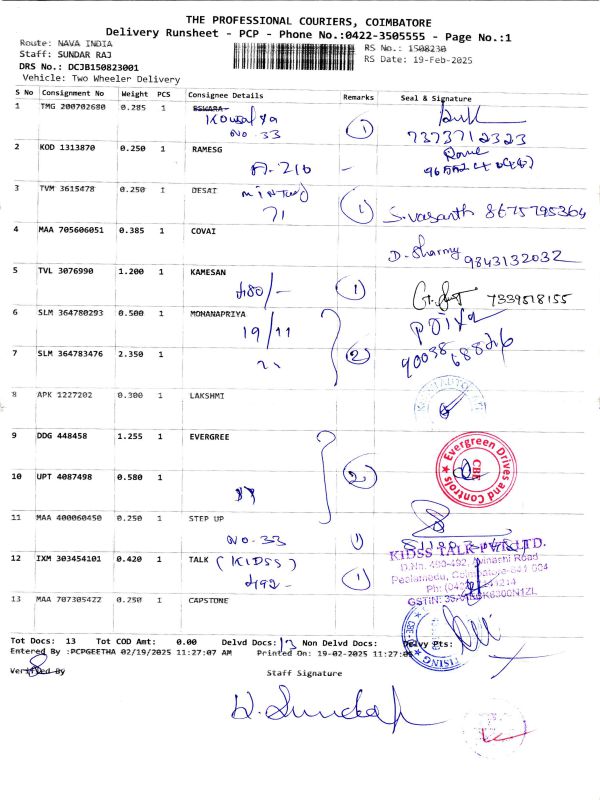 THE PROFESSIONAL COURIERS, COIMBATORE
Delivery Runsheet - PCP - Phone No.:0422-3505555 - Page No.:1
Route: NAVA INDIA
Staff: SUNDAR RAJ
DRS No.: DCJB150823001
Vehicle: Two Wheeler Delivery
RS No.: 1508230
RS Date: 19-Feb-2025
S No Consignment No Weight PCS Consignee Details Remarks Seal & Signature
1 TMG 200702680 0.285 1 ESWARA
Kousalya
No. 33 1
7373712323
2 KOD 1313870 0.250 1 RAMESG
A-210 -
3 TVM 3615478 0.250 1 DESAI
71 1 S.Vasanth 8675795364
4 MAA 705606051 0.385 1 COVAI
D. Sharmy 9843132032
5 TVL 3076990 1.200 1 KAMESAN
480/- 1 7339518155
6 SLM 364780293 0.500 1 MOHANAPRIYA
19/11
7 SLM 364783476 2.350 1 2 90038 68826
8 APK 1227202 0.300 1 LAKSHMI
9 DDG 448458 1.255 1 EVERGREE
Evergreen Drives and Controls
CBE
10 UPT 4087498 0.580 1 2
11 MAA 400060450 0.250 1 STEP UP
No. 33 1
12 IXM 303454101 0.420 1 TALK (KIDSS)
492- 1
KIDSS TALK PVT LTD.
D.No. 490-492, Avinashi Road
Peelamedu, Coimbatore-641 004
13 MAA 707305422 0.250 1 CAPSTONE
Tot Docs: 13 Tot COD Amt: 0.00 Delvd Docs: 13 Non Delvd Docs: Delvy Pts:
Entered By :PCPGEETHA 02/19/2025 11:27:07 AM Printed On: 19-02-2025 11:27:0
Verified By
Staff Signature